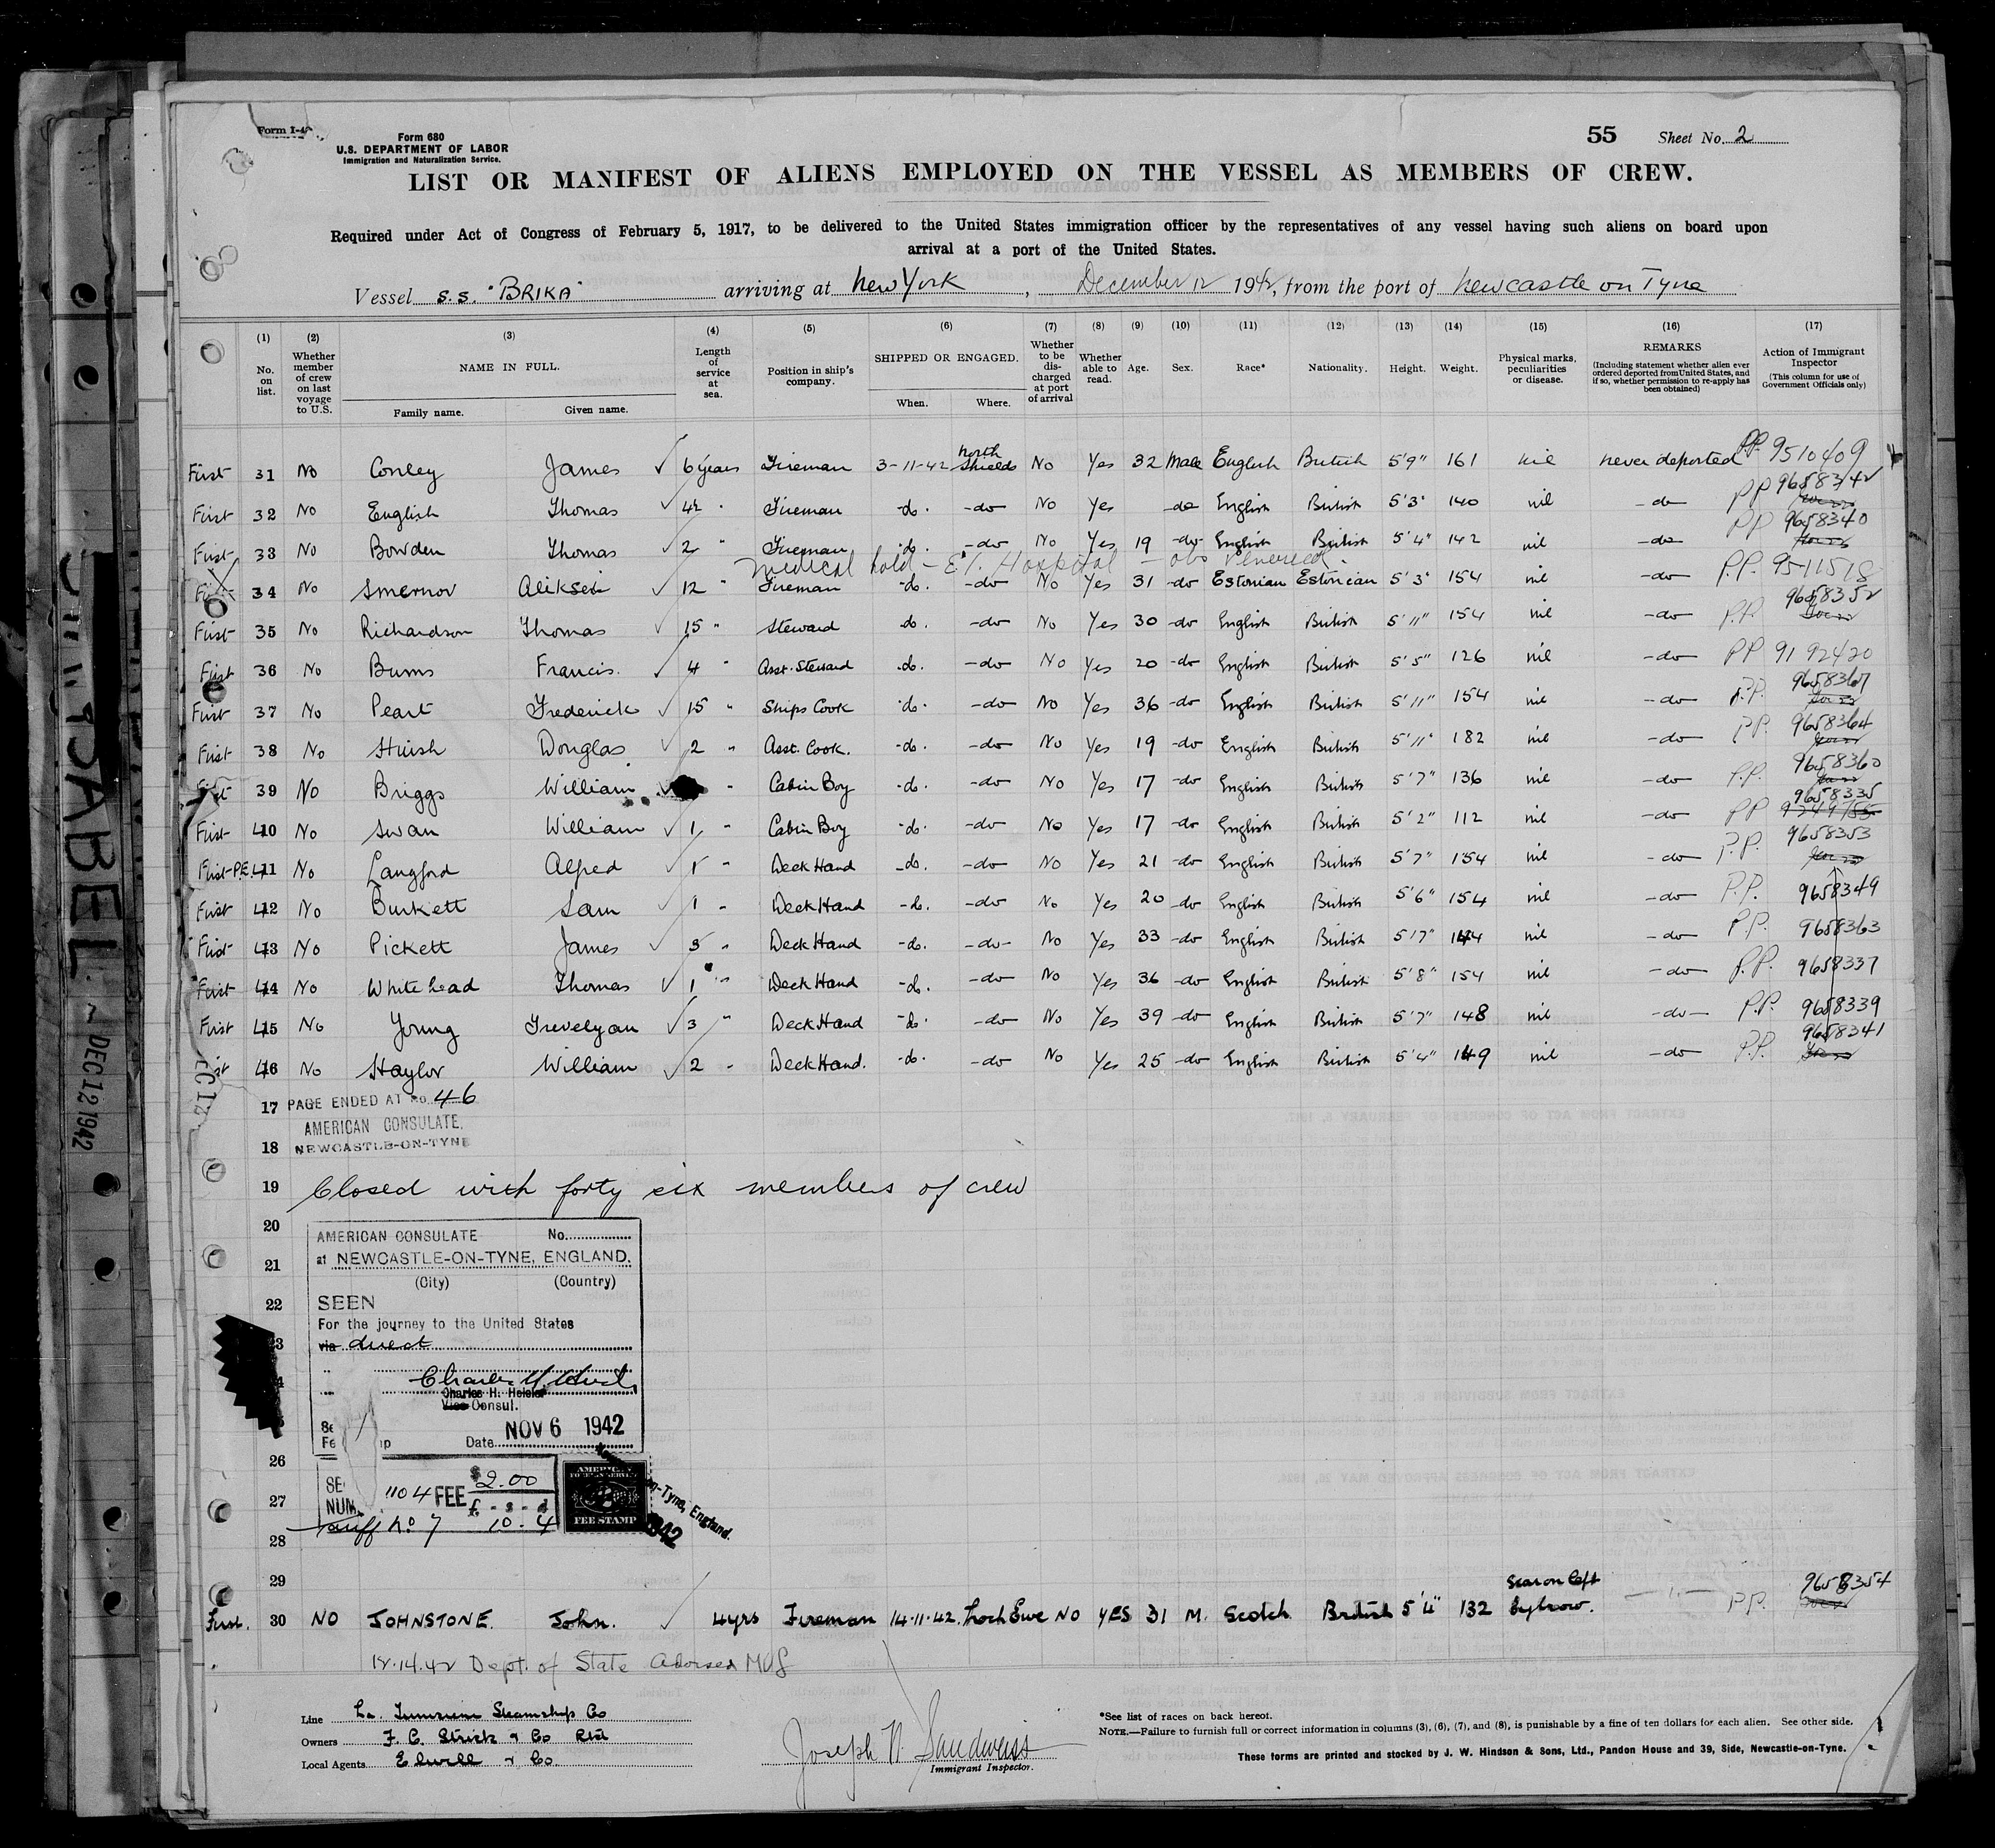 Form I-4
Form 680
U.S. DEPARTMENT OF LABOR
Immigration and Naturalization Service.
55 Sheet No. 2
LIST OR MANIFEST OF ALIENS EMPLOYED ON THE VESSEL AS MEMBERS OF CREW.
Required under Act of Congress of February 5, 1917, to be delivered to the United States immigration officer by the representatives of any vessel having such aliens on board upon
arrival at a port of the United States.
Vessel S.S. "BRIKA" arriving at New York, December 12 1942, from the port of Newcastle on Tyne
(1) No. on list.
(2) Whether member of crew on last voyage to U.S.
(3) NAME IN FULL. Family name. Given name.
(4) Length of service at sea.
(5) Position in ship's company.
(6) SHIPPED OR ENGAGED. When. Where.
(7) Whether to be discharged at port of arrival
(8) Whether able to read.
(9) Age.
(10) Sex.
(11) Race*
(12) Nationality.
(13) Height.
(14) Weight.
(15) Physical marks, peculiarities or disease.
(16) REMARKS (Including statement whether alien ever ordered deported from United States, and if so, whether permission to re-apply has been obtained)
(17) Action of Immigrant Inspector (This column for use of Government Officials only)
First 31 No Conley James ✓ 6 years Fireman 3-11-42 North Shields No Yes 32 Male English British 5'9" 161 nil never deported PP 9510409
First 32 No English Thomas ✓ 42 " Fireman -do. -do- No Yes -do- English British 5'3" 140 nil -do- PP 9658342
First 33 No Bowden Thomas ✓ 2 " Fireman -do. -do- No Yes 19 -do- English British 5'4" 142 nil -do- PP 9658340
Medical hold - E.I. Hospital - obs Venereal.
First 34 No Smernov Aliksei ✓ 12 " Fireman -do. -do- No Yes 31 -do- Estonian Estonian 5'3" 154 nil -do- P.P. 9511518
First 35 No Richardson Thomas ✓ 15 " Steward -do. -do- No Yes 30 -do- English British 5'11" 154 nil -do- P.P. 9658352
First 36 No Burns Francis. ✓ 4 " Asst. Steward -do. -do- No Yes 20 -do- English British 5'5" 126 nil -do- PP 9192420
First 37 No Peart Frederick ✓ 15 " Ships Cook -do. -do- No Yes 36 -do- English British 5'11" 154 nil -do- P.P. 9658367
First 38 No Douglas ✓ 2 " Asst. Cook. -do. -do- No Yes 19 -do- English British 5'11" 182 nil -do- P.P. 9658364
First 39 No Briggs William ✓ " Cabin Boy -do. -do- No Yes 17 -do- English British 5'7" 136 nil -do- P.P. 9658360
First 40 No Swan William ✓ 1 " Cabin Boy -do. -do- No Yes 17 -do- English British 5'2" 112 nil -do- PP 9658335 9249755
First-P.E. 41 No Langford Alfred ✓ 1 " Deck Hand -do. -do- No Yes 21 -do- English British 5'7" 154 nil -do- P.P. 9658353
First 42 No Burkett Sam ✓ 1 " Deck Hand -do. -do- No Yes 20 -do- English British 5'6" 154 nil -do- P.P. 9658349
First 43 No Pickett James ✓ 3 " Deck Hand -do. -do- No Yes 33 -do- English British 5'7" 144 nil -do- P.P. 9658363
First 44 No Whitehead Thomas ✓ 1 " Deck Hand -do. -do- No Yes 36 -do- English British 5'8" 154 nil -do- P.P. 9658337
First 45 No Young Trevelyan ✓ 3 " Deck Hand -do. -do- No Yes 39 -do- English British 5'7" 148 nil -do- P.P. 9658339
46 No Haylor William ✓ 2 " Deck Hand. -do. -do- No Yes 25 -do- English British 5'4" 149 nil -do- P.P. 9658341
17 PAGE ENDED AT No. 46
AMERICAN CONSULATE,
18 NEWCASTLE-ON-TYNE
19 Closed with forty six members of crew
20
AMERICAN CONSULATE No.
21 at NEWCASTLE-ON-TYNE, ENGLAND.
(City) (Country)
22 SEEN
For the journey to the United States
via direct
Charles H. Heisler
Vice Consul.
Date NOV 6 1942
26
SE 1104 FEE $2.00
27 NUM £ - s - d
tariff No 7 10 - 4
AMERICAN FOREIGN SERVICE
FEE STAMP
on-Tyne, England.
1942
28
29
First. 30 NO JOHNSTONE. John. ✓ 4yrs Fireman 14.11.42. Loch Ewe NO YES 31 M. Scotch British 5'4" 132 Scar on left eyebrow. P.P. 9658354
12.14.42 Dept. of State Advised
Line La. Tunisienne Steamship Co
Owners F. C. Strick & Co Ltd
Local Agents Elwell & Co
Joseph N. Sandweiss
Immigrant Inspector.
*See list of races on back hereof.
NOTE.—Failure to furnish full or correct information in columns (3), (6), (7), and (8), is punishable by a fine of ten dollars for each alien. See other side.
These forms are printed and stocked by J. W. Hindson & Sons, Ltd., Pandon House and 39, Side, Newcastle-on-Tyne.
ISABEL ~ DEC 12 1942